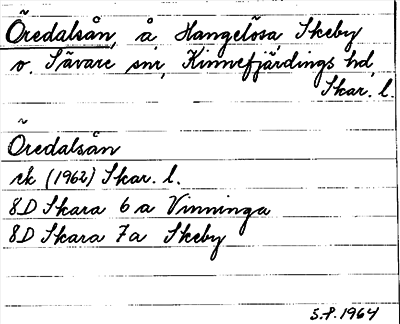 Öredalsån, å, Hangelösa, Skeby
o. Sävare snr, Kinnefjärdings hd,
Skar. l.
Öredalsån
rk (1962) Skar. l.
8D Skara 6 a Vinninga
8D Skara 7a Skeby
S.P. 1964